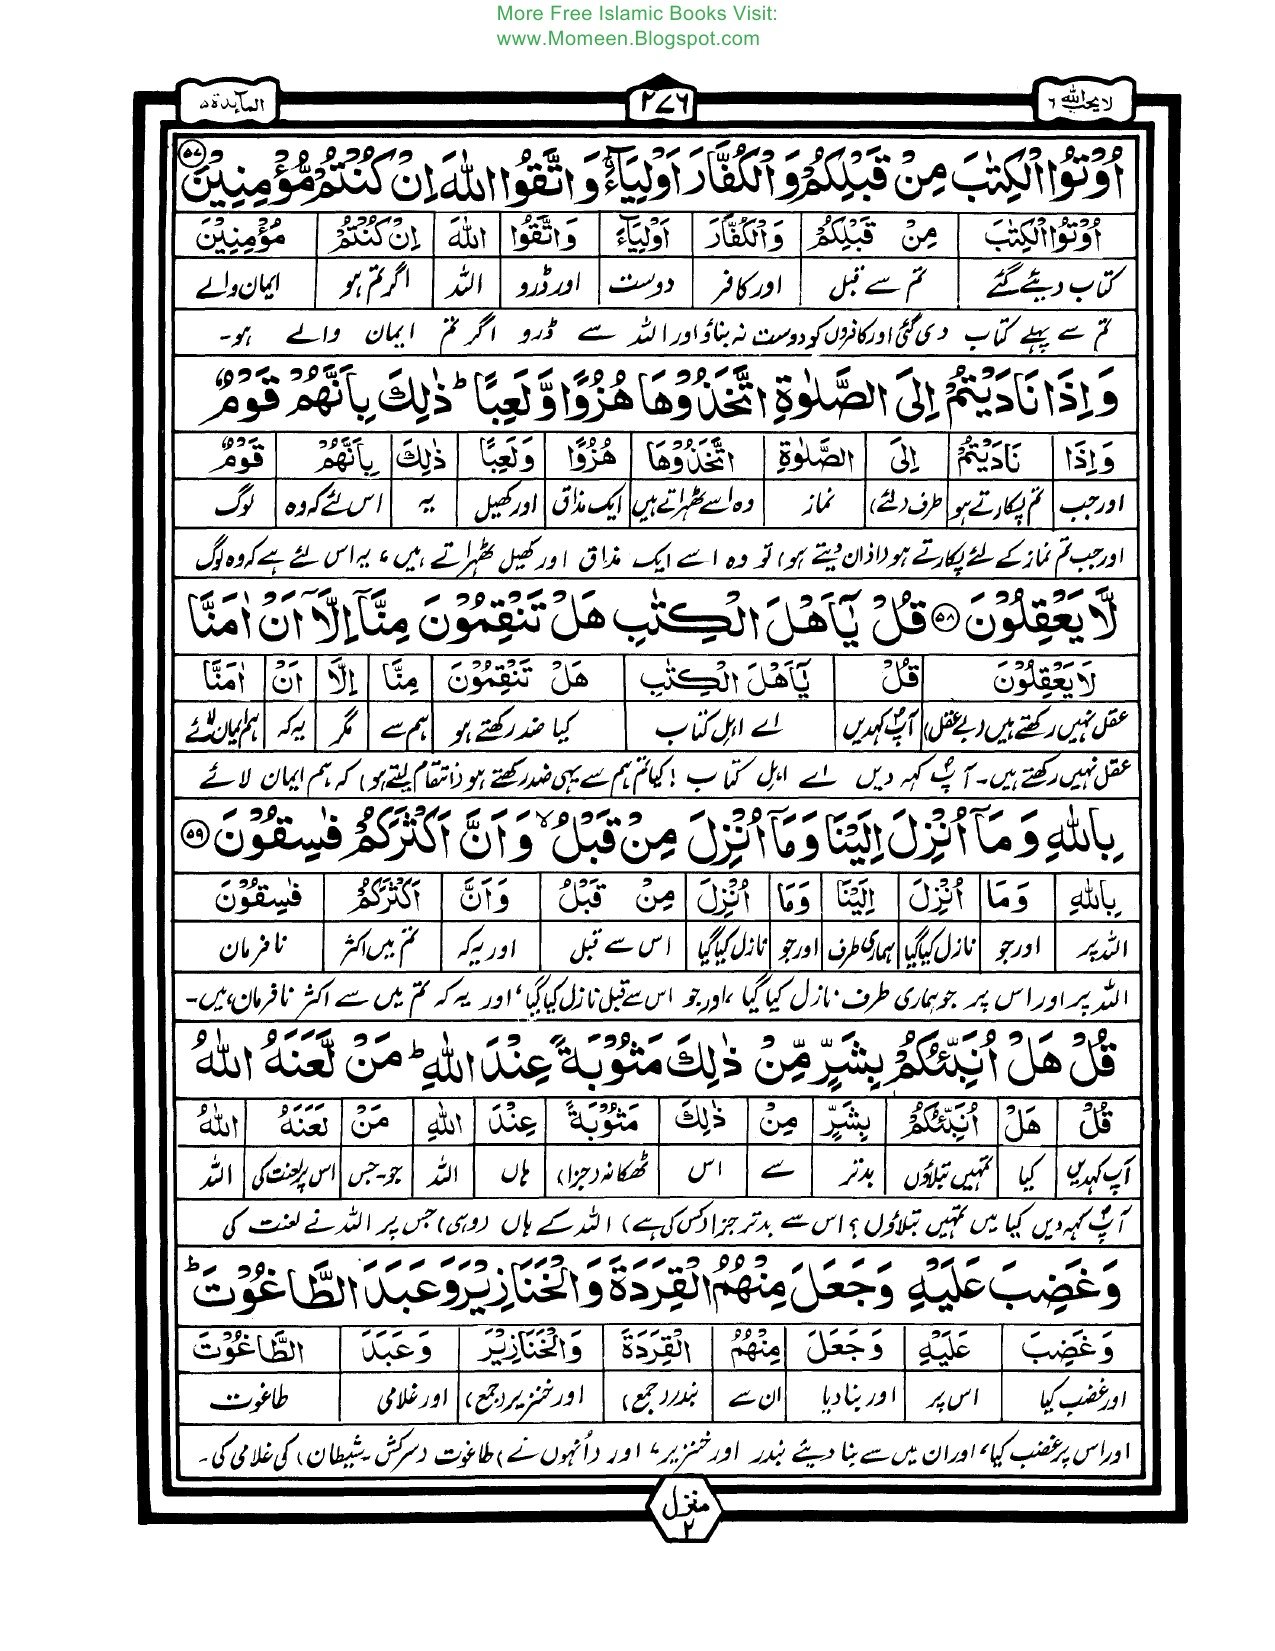 More Free Islamic Books Visit:
www.Momeen.Blogspot.com
لا يحب الله ٦ ٢٧٦ المآئدة ٥
اُوْتُوا الْكِتٰبَ مِنْ قَبْلِكُمْ وَالْكُفَّارَ اَوْلِيَآءَ ۚ وَاتَّقُوا اللّٰهَ اِنْ كُنْتُمْ مُّؤْمِنِيْنَ ۝۵۷
اُوْتُوا الْكِتٰبَ مِنْ قَبْلِكُمْ وَالْكُفَّارَ اَوْلِيَآءَ وَاتَّقُوا اللّٰهَ اِنْ كُنْتُمْ مُؤْمِنِيْنَ
کتاب دیئے گئے تم سے قبل اور کافر دوست اور ڈرو اللہ اگر تم ہو ایمان والے
تم سے پہلے کتاب دی گئی اور کافروں کو دوست نہ بناؤ اور اللہ سے ڈرو اگر تم ایمان والے ہو۔
وَاِذَا نَادَيْتُمْ اِلَى الصَّلٰوةِ اتَّخَذُوْهَا هُزُوًا وَّلَعِبًا ؕ ذٰلِكَ بِاَنَّهُمْ قَوْمٌ
وَاِذَا نَادَيْتُمْ اِلَى الصَّلٰوةِ اتَّخَذُوْهَا هُزُوًا وَلَعِبًا ذٰلِكَ بِاَنَّهُمْ قَوْمٌ
اور جب تم پکارتے ہو طرف (لئے) نماز وہ اسے ٹھہراتے ہیں ایک مذاق اور کھیل یہ اس لئے کہ وہ لوگ
اور جب تم نماز کے لئے پکارتے ہو (اذان دیتے ہو) تو وہ اسے ایک مذاق اور کھیل ٹھہراتے ہیں، یہ اس لئے ہے کہ وہ لوگ
لَّا يَعْقِلُوْنَ ۝۵۸ قُلْ يٰٓاَهْلَ الْكِتٰبِ هَلْ تَنْقِمُوْنَ مِنَّآ اِلَّآ اَنْ اٰمَنَّا
لَا يَعْقِلُوْنَ قُلْ يٰٓاَهْلَ الْكِتٰبِ هَلْ تَنْقِمُوْنَ مِنَّا اِلَّا اَنْ اٰمَنَّا
عقل نہیں رکھتے ہیں (بے عقل) آپ کہدیں اے اہل کتاب کیا ضد رکھتے ہو ہم سے مگر یہ کہ ہم ایمان لائے
عقل نہیں رکھتے ہیں۔ آپؐ کہہ دیں اے اہل کتاب! کیا تم ہم سے یہی ضد رکھتے ہو (انتقام لیتے ہو) کہ ہم ایمان لائے
بِاللّٰهِ وَمَآ اُنْزِلَ اِلَيْنَا وَمَآ اُنْزِلَ مِنْ قَبْلُ ۙ وَاَنَّ اَكْثَرَكُمْ فٰسِقُوْنَ ۝۵۹
بِاللّٰهِ وَمَا اُنْزِلَ اِلَيْنَا وَمَا اُنْزِلَ مِنْ قَبْلُ وَاَنَّ اَكْثَرَكُمْ فٰسِقُوْنَ
اللہ پر اور جو نازل کیا گیا ہماری طرف اور جو نازل کیا گیا اس سے قبل اور یہ کہ تم میں اکثر نافرمان
اللہ پر اور اس پر جو ہماری طرف نازل کیا گیا، اور جو اس سے قبل نازل کیا گیا، اور یہ کہ تم میں سے اکثر نافرمان ہیں۔
قُلْ هَلْ اُنَبِّئُكُمْ بِشَرٍّ مِّنْ ذٰلِكَ مَثُوْبَةً عِنْدَ اللّٰهِ ؕ مَنْ لَّعَنَهُ اللّٰهُ
قُلْ هَلْ اُنَبِّئُكُمْ بِشَرٍّ مِنْ ذٰلِكَ مَثُوْبَةً عِنْدَ اللّٰهِ مَنْ لَعَنَهُ اللّٰهُ
آپ کہدیں کیا تمہیں بتلاؤں بدتر سے اس ٹھکانہ (جزا) ہاں اللہ جو۔ جس اس پر لعنت کی اللہ
آپؐ کہہ دیں کیا میں تمہیں بتلاؤں؟ اس سے بدتر جزا (کس کی ہے) اللہ کے ہاں (وہی) جس پر اللہ نے لعنت کی
وَغَضِبَ عَلَيْهِ وَجَعَلَ مِنْهُمُ الْقِرَدَةَ وَالْخَنَازِيْرَ وَعَبَدَ الطَّاغُوْتَ ؕ
وَغَضِبَ عَلَيْهِ وَجَعَلَ مِنْهُمُ الْقِرَدَةَ وَالْخَنَازِيْرَ وَعَبَدَ الطَّاغُوْتَ
اور غضب کیا اس پر اور بنا دیا ان سے بندر (جمع) اور خنزیر (جمع) اور غلامی طاغوت
اور اس پر غضب کیا، اور ان میں سے بنا دیئے بندر اور خنزیر، اور (اُنہوں نے) طاغوت (سرکش۔ شیطان) کی غلامی کی۔
منزل ۲